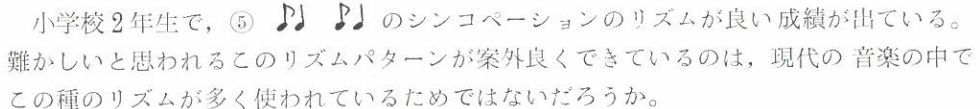 小学校2年生で，⑤ ♪♩ ♪♩ のシンコペーションのリズムが良い成績が出ている。
難かしいと思われるこのリズムパターンが案外良くできているのは，現代の音楽の中で
この種のリズムが多く使われているためではないだろうか。